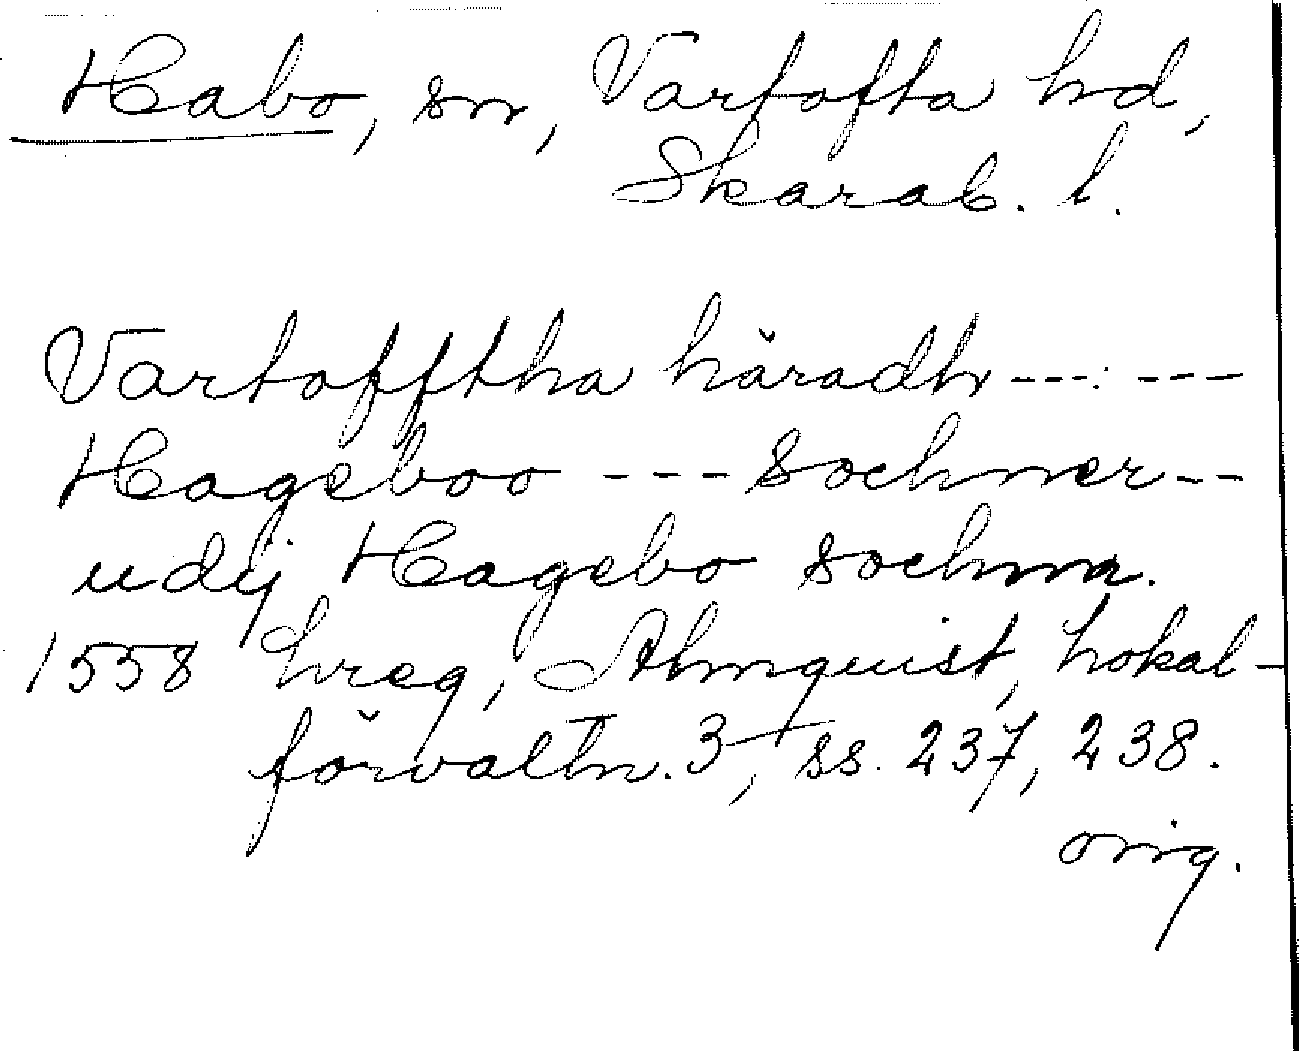 Habo, sn, Vartofta hd,
Skarab. l.
Vartofftha häradh --- : ---
Hageboo --- sochner --
udij Hagebo sochnn.
1558 hreg, Almquist, Lokal-
förvaltn. 3, ss. 237, 238.
orig.